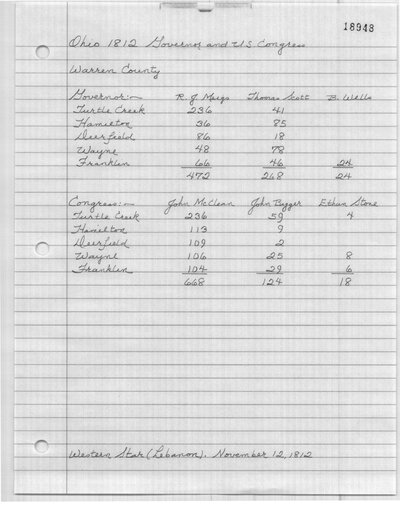 18948
Ohio 1812 Governor and U.S. Congress
Warren County
Governor:— R. J. Meigs Thomas Scott B. Wells
Turtle Creek 236 41
Hamilton 36 85
Deerfield 86 18
Wayne 48 78
Franklin 66 46 24
472 268 24
Congress:— John McClean John Bigger Ethan Stone
Turtle Creek 236 59 4
Hamilton 113 9
Deerfield 109 2
Wayne 106 25 8
Franklin 104 29 6
668 124 18
Western Star (Lebanon). November 12, 1812